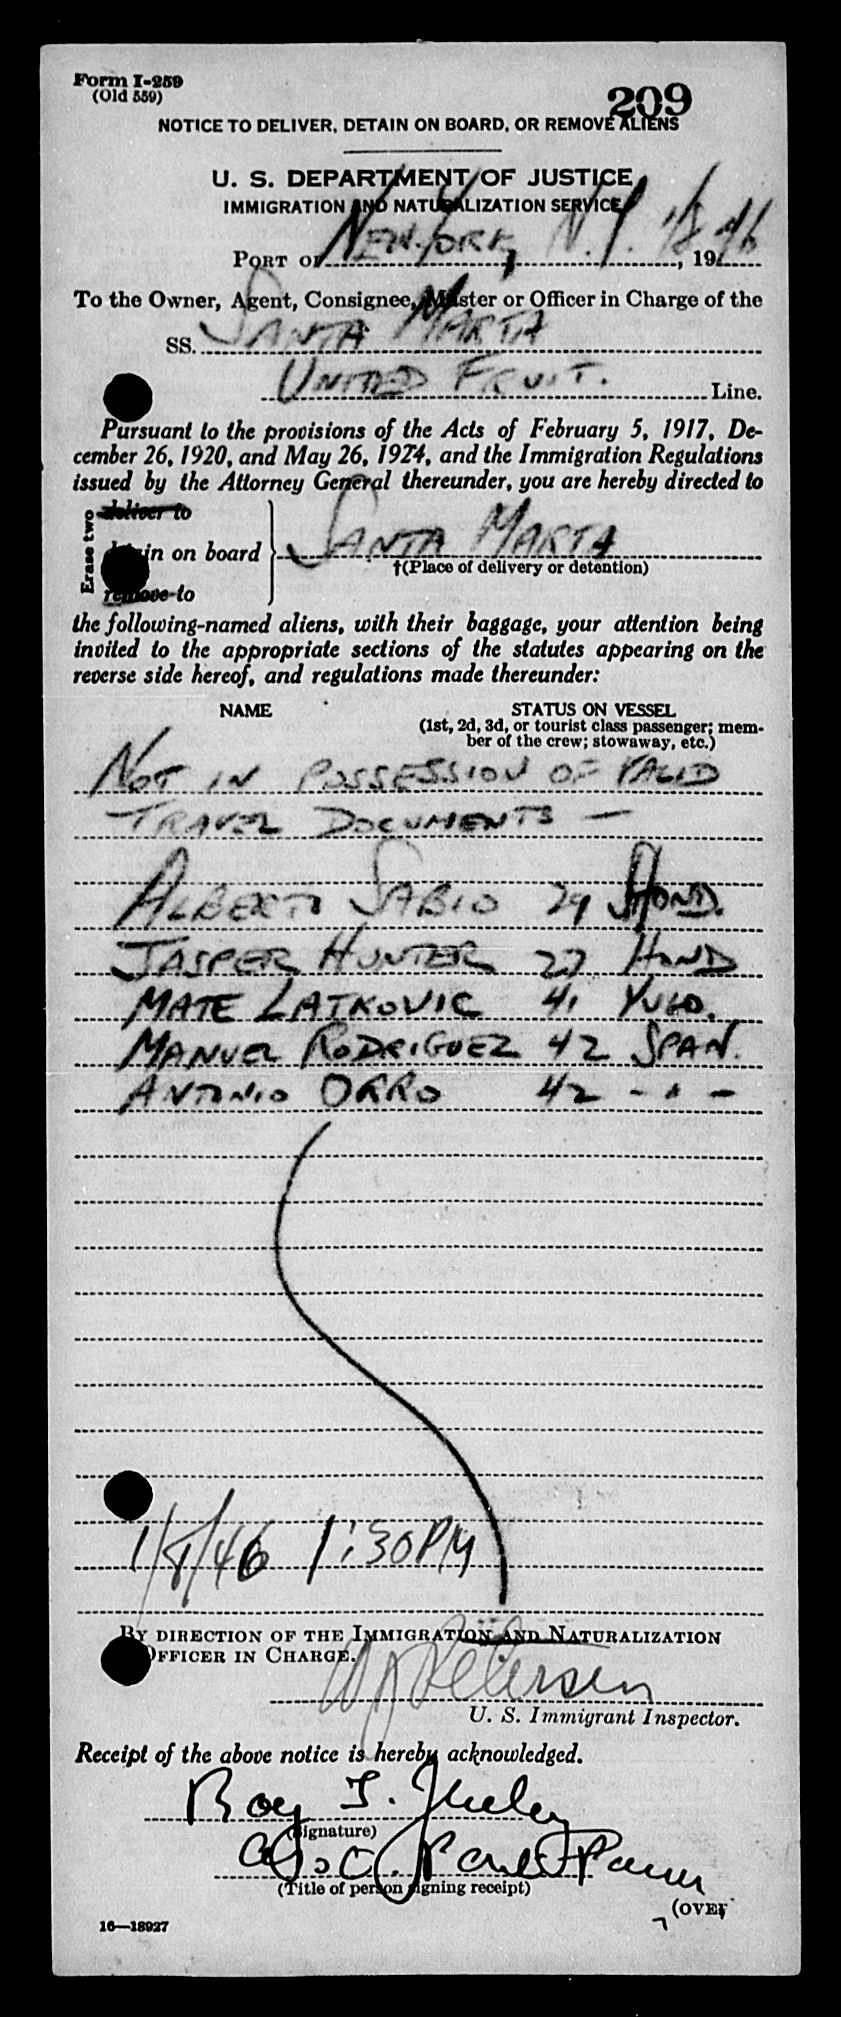 Form I-259
(Old 559)
209
NOTICE TO DELIVER, DETAIN ON BOARD, OR REMOVE ALIENS
U. S. DEPARTMENT OF JUSTICE
IMMIGRATION AND NATURALIZATION SERVICE
PORT OF NEW YORK, N.Y. 1/8, 1946
To the Owner, Agent, Consignee, Master or Officer in Charge of the
SS. SANTA MARTA
UNITED FRUIT. Line.
Pursuant to the provisions of the Acts of February 5, 1917, De-
cember 26, 1920, and May 26, 1924, and the Immigration Regulations
issued by the Attorney General thereunder, you are hereby directed to
Erase two
deliver to
in on board SANTA MARTA
†(Place of delivery or detention)
remove to
the following-named aliens, with their baggage, your attention being
invited to the appropriate sections of the statutes appearing on the
reverse side hereof, and regulations made thereunder:
NAME STATUS ON VESSEL
(1st, 2d, 3d, or tourist class passenger; mem-
ber of the crew; stowaway, etc.)
NOT IN POSSESSION OF VALID
TRAVEL DOCUMENTS —
ALBERTO SABIO 29 HOND.
JASPER HUNTER 27 HOND
MATE LATKOVIC 41 YUGO.
MANUEL RODRIGUEZ 42 SPAN.
ANTONIO ORRO 42 - " -
1/8/46 1:30PM
BY DIRECTION OF THE IMMIGRATION AND NATURALIZATION
OFFICER IN CHARGE.
Petersen
U. S. Immigrant Inspector.
Receipt of the above notice is hereby acknowledged.
Roy
(Signature)
(Title of person signing receipt)
(OVER
16—18927